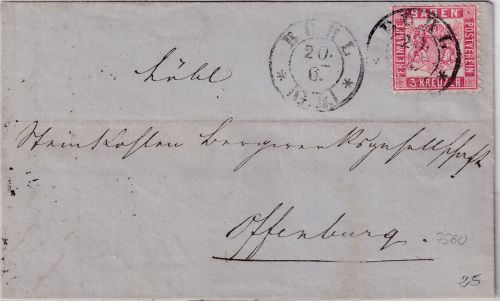 BÜHL
20.
6.
BADEN
FREIMARKE
POSTVEREIN
3 KREUZER
Löbl
Steinkohlen Bergwerksgesellschaft
Offenburg.
7560
25